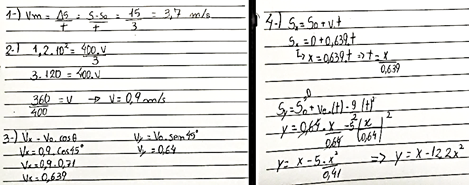 1-) Vm = ΔS/t = S-S0/t = 15/3 = 3,7 m/s
2-) 1,2.10² = 400.v/3
3.120 = 400.v
360/400 = v → v = 0,9 m/s
3-) Vx = V0.cosθ
Vx = 0,9.cos45°
Vx = 0,9.0,71
Vx = 0,639
Vy = V0.sen45°
Vy = 0,64
4-) Sx = S0 + v.t
Sx = 0 + 0,639.t
↳ x = 0,639t → t = x/0,639
0
Sy = S0 + v0.(t) - g(t)²/2
y = 0,64.x/0,64 - 5(x/0,64)²
y = x - 5.x²/0,41 ⇒ y = x - 12,2x²